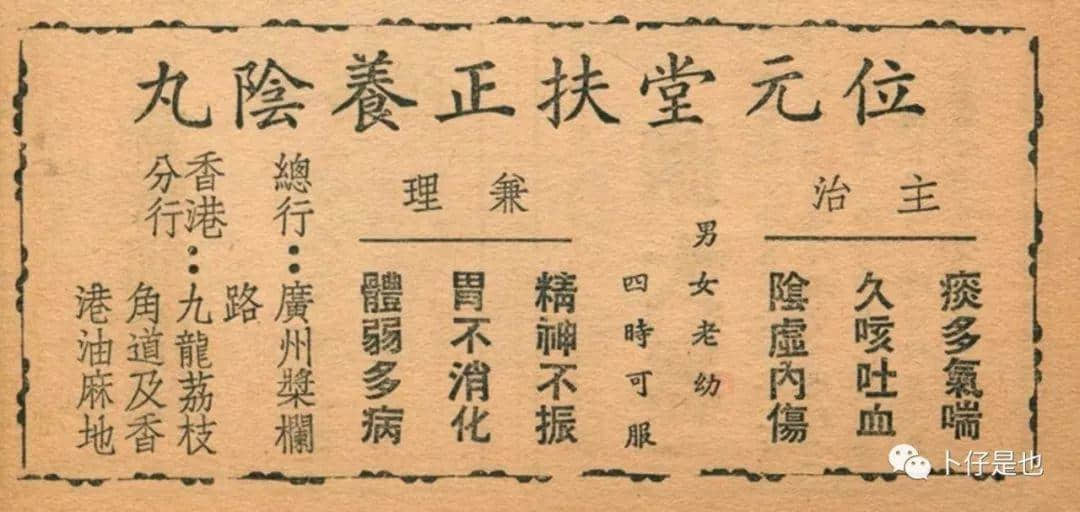 位元堂扶正養陰丸
主治
痰多氣喘
久咳吐血
陰虛內傷
男女老幼
四時可服
兼理
精神不振
胃不消化
體弱多病
總行：廣州槳欄
路
香港分行：九龍荔枝
角道及香
港油麻地
卜仔是也